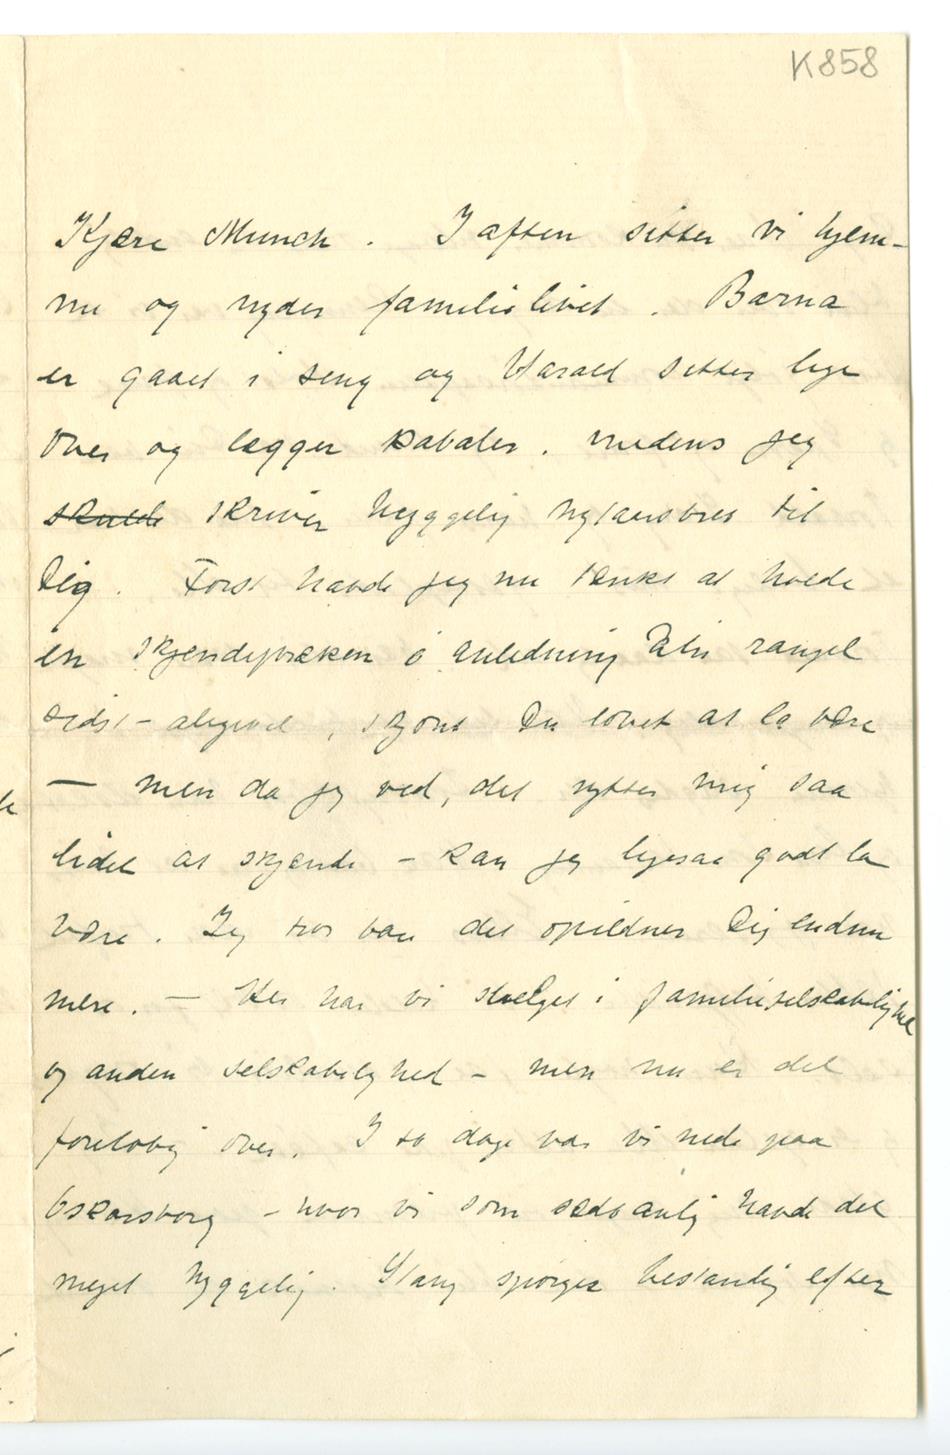 K858
Kjære Munch. I aften sitter vi hjem-
me og nyder familielivet. Barna
er gaaet i seng og Harald sitter lige
over og lægger kabaler. medens jeg
skulde skriver hyggelig nytaarsbrev til
Dig. Først havde jeg nu tænkt at holde
en skjendepræken i anledning Din rangel
sidst – alligevel, skjønt Du lovet at la være
— men da jeg ved, det nytter mig saa
lidet at skjænde – kan jeg ligesaa godt la
være. Jeg tror bare det opildner Dig endnu
mere. – Her har vi svelget i familieselskabelighed
og anden selskabelighed – men nu er det
foreløbig over. I to dage var vi nede paa
Oskarsborg – hvor vi som sedvanlig havde det
meget hyggelig. Stang spørger bestandig efter